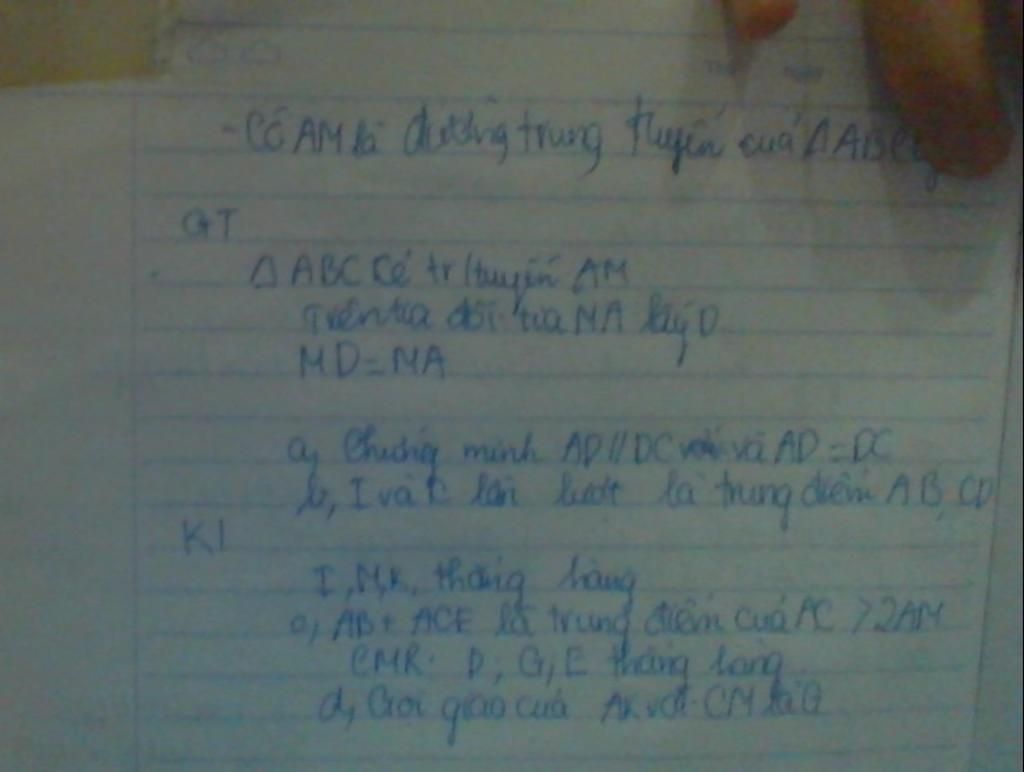 - Có AM là đường trung tuyến cuả ΔABC
GT
Δ ABC Kẻ tr/tuyến AM
Trên tia đối tia MA lấy D
MD = MA
a, Chứng minh AD // DC và AD = DC
b, I và K lần lượt là trung điểm AB, CD
KL
I, M, K, thẳng hàng
c, AB + ACE là trung điểm cuả AC > 2AM
CMR. D, G, E thẳng hàng
d, Gọi giao cuả AK với CM là G